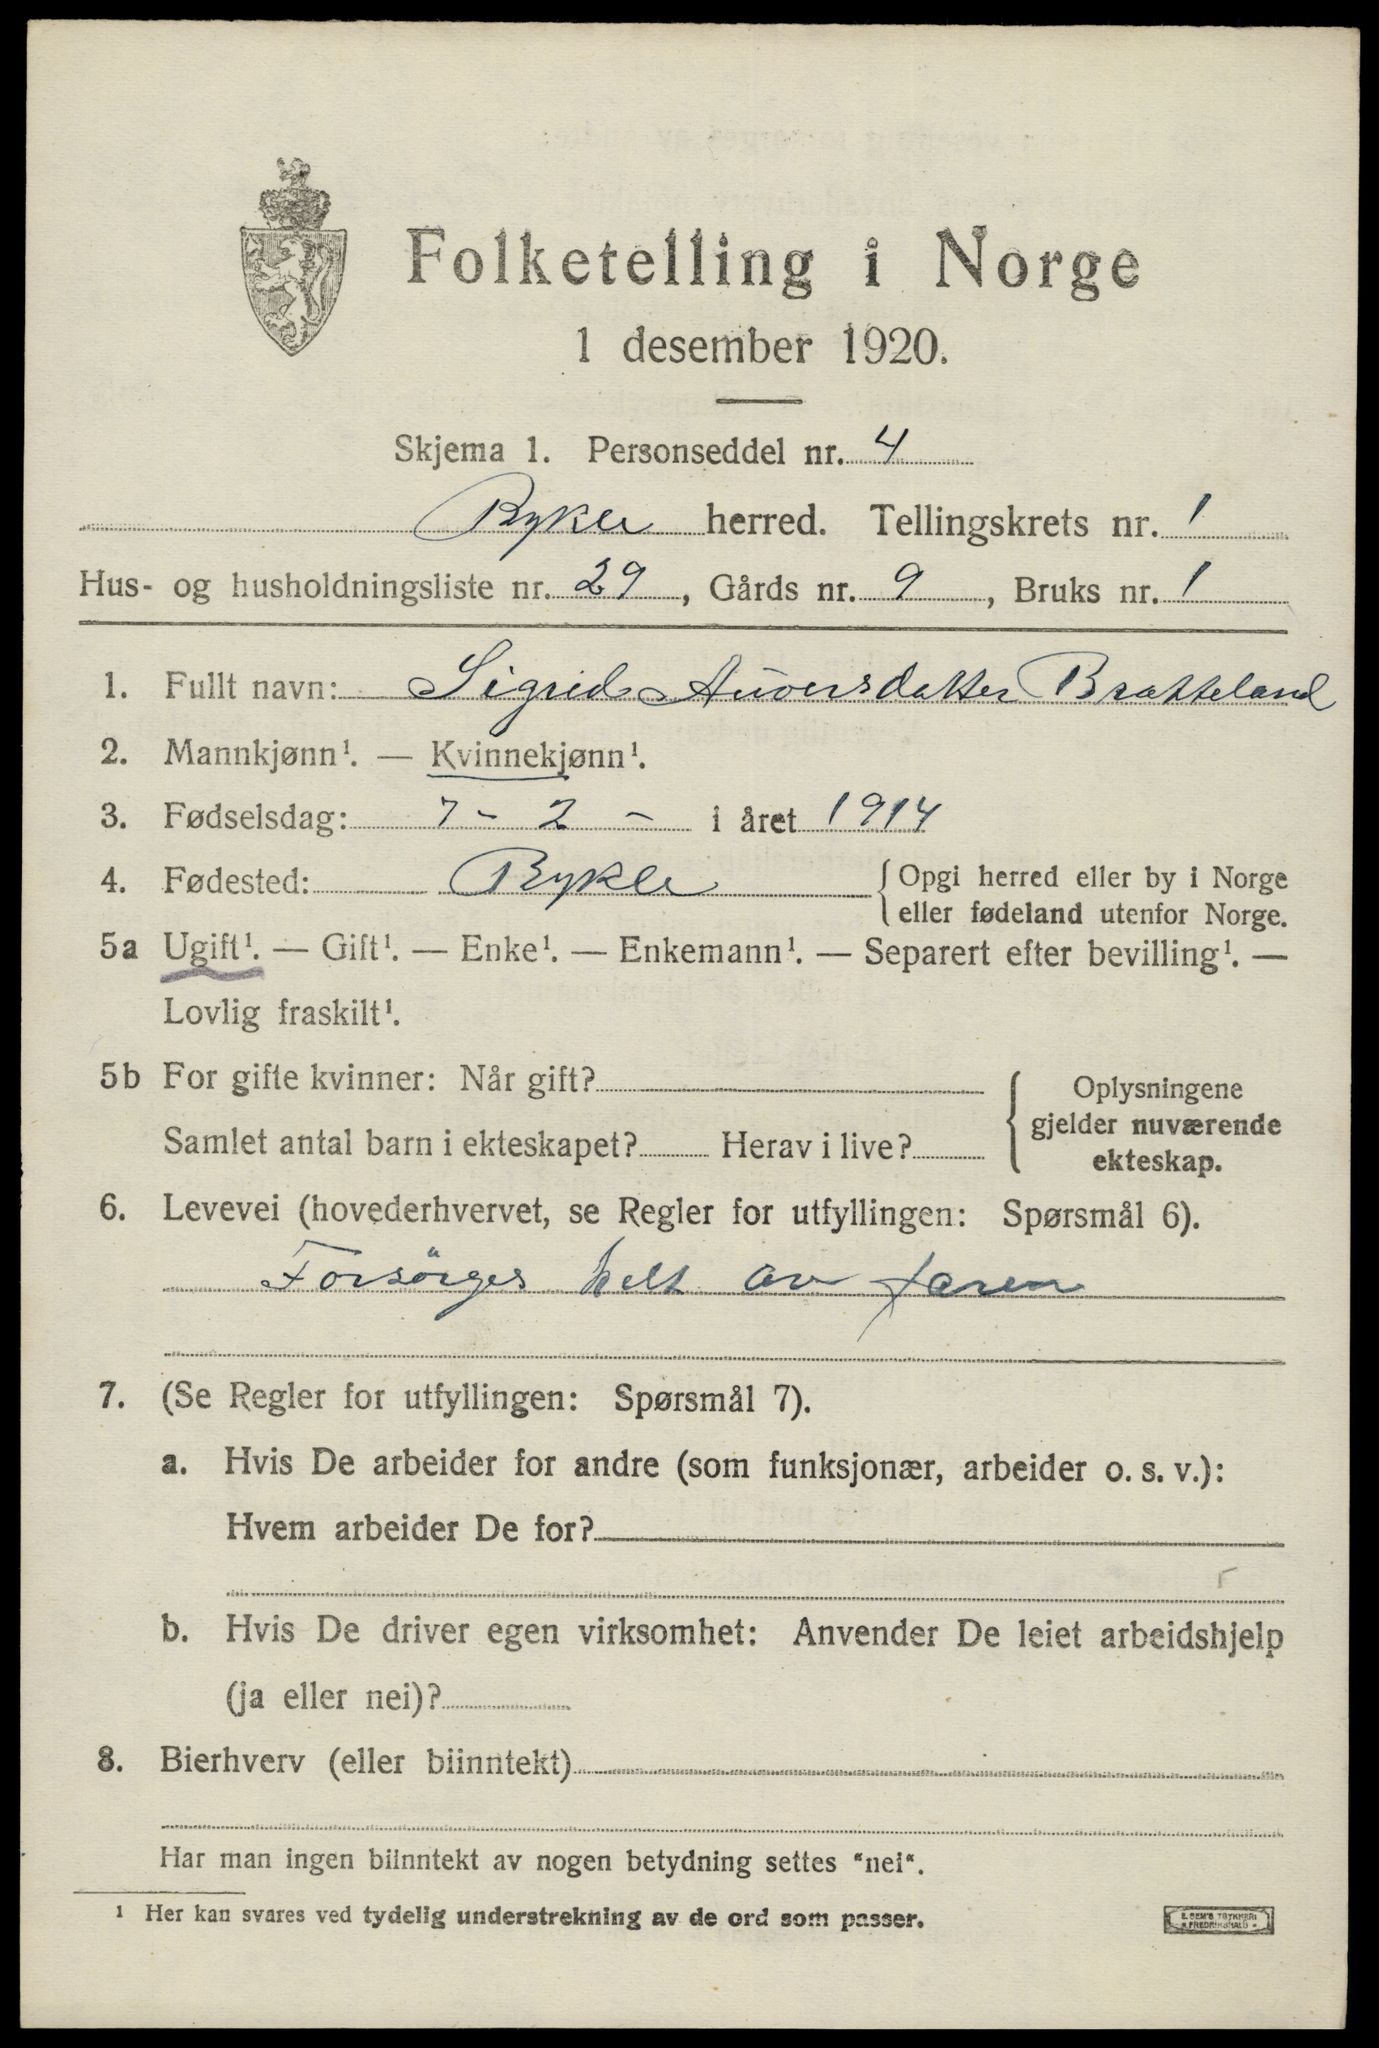 Folketelling i Norge
1 desember 1920.
Skjema 1. Personseddel nr. 4
Bykle herred. Tellingskrets nr. 1
Hus- og husholdningsliste nr. 29, Gårds nr. 9, Bruks nr. 1
1. Fullt navn: Sigrid Auversdatter Bratteland
2. Mannkjønn¹. — Kvinnekjønn¹.
3. Fødselsdag: 7 - 2 - i året 1914
4. Fødested: Bykle { Opgi herred eller by i Norge
eller fødeland utenfor Norge.
5a Ugift¹. — Gift¹. — Enke¹. — Enkemann¹. — Separert efter bevilling¹. —
Lovlig fraskilt¹.
5b For gifte kvinner: Når gift?
Samlet antal barn i ekteskapet? Herav i live?
{ Oplysningene
gjelder nuværende
ekteskap.
6. Levevei (hovederhvervet, se Regler for utfyllingen: Spørsmål 6).
Forsörges helt av faren
7. (Se Regler for utfyllingen: Spørsmål 7).
a. Hvis De arbeider for andre (som funksjonær, arbeider o. s. v.):
Hvem arbeider De for?
b. Hvis De driver egen virksomhet: Anvender De leiet arbeidshjelp
(ja eller nei)?
8. Bierhverv (eller biinntekt)
Har man ingen biinntekt av nogen betydning settes "nei".
¹ Her kan svares ved tydelig understrekning av de ord som passer.
E. SEM'S TRYKKERI
FREDRIKSHALD